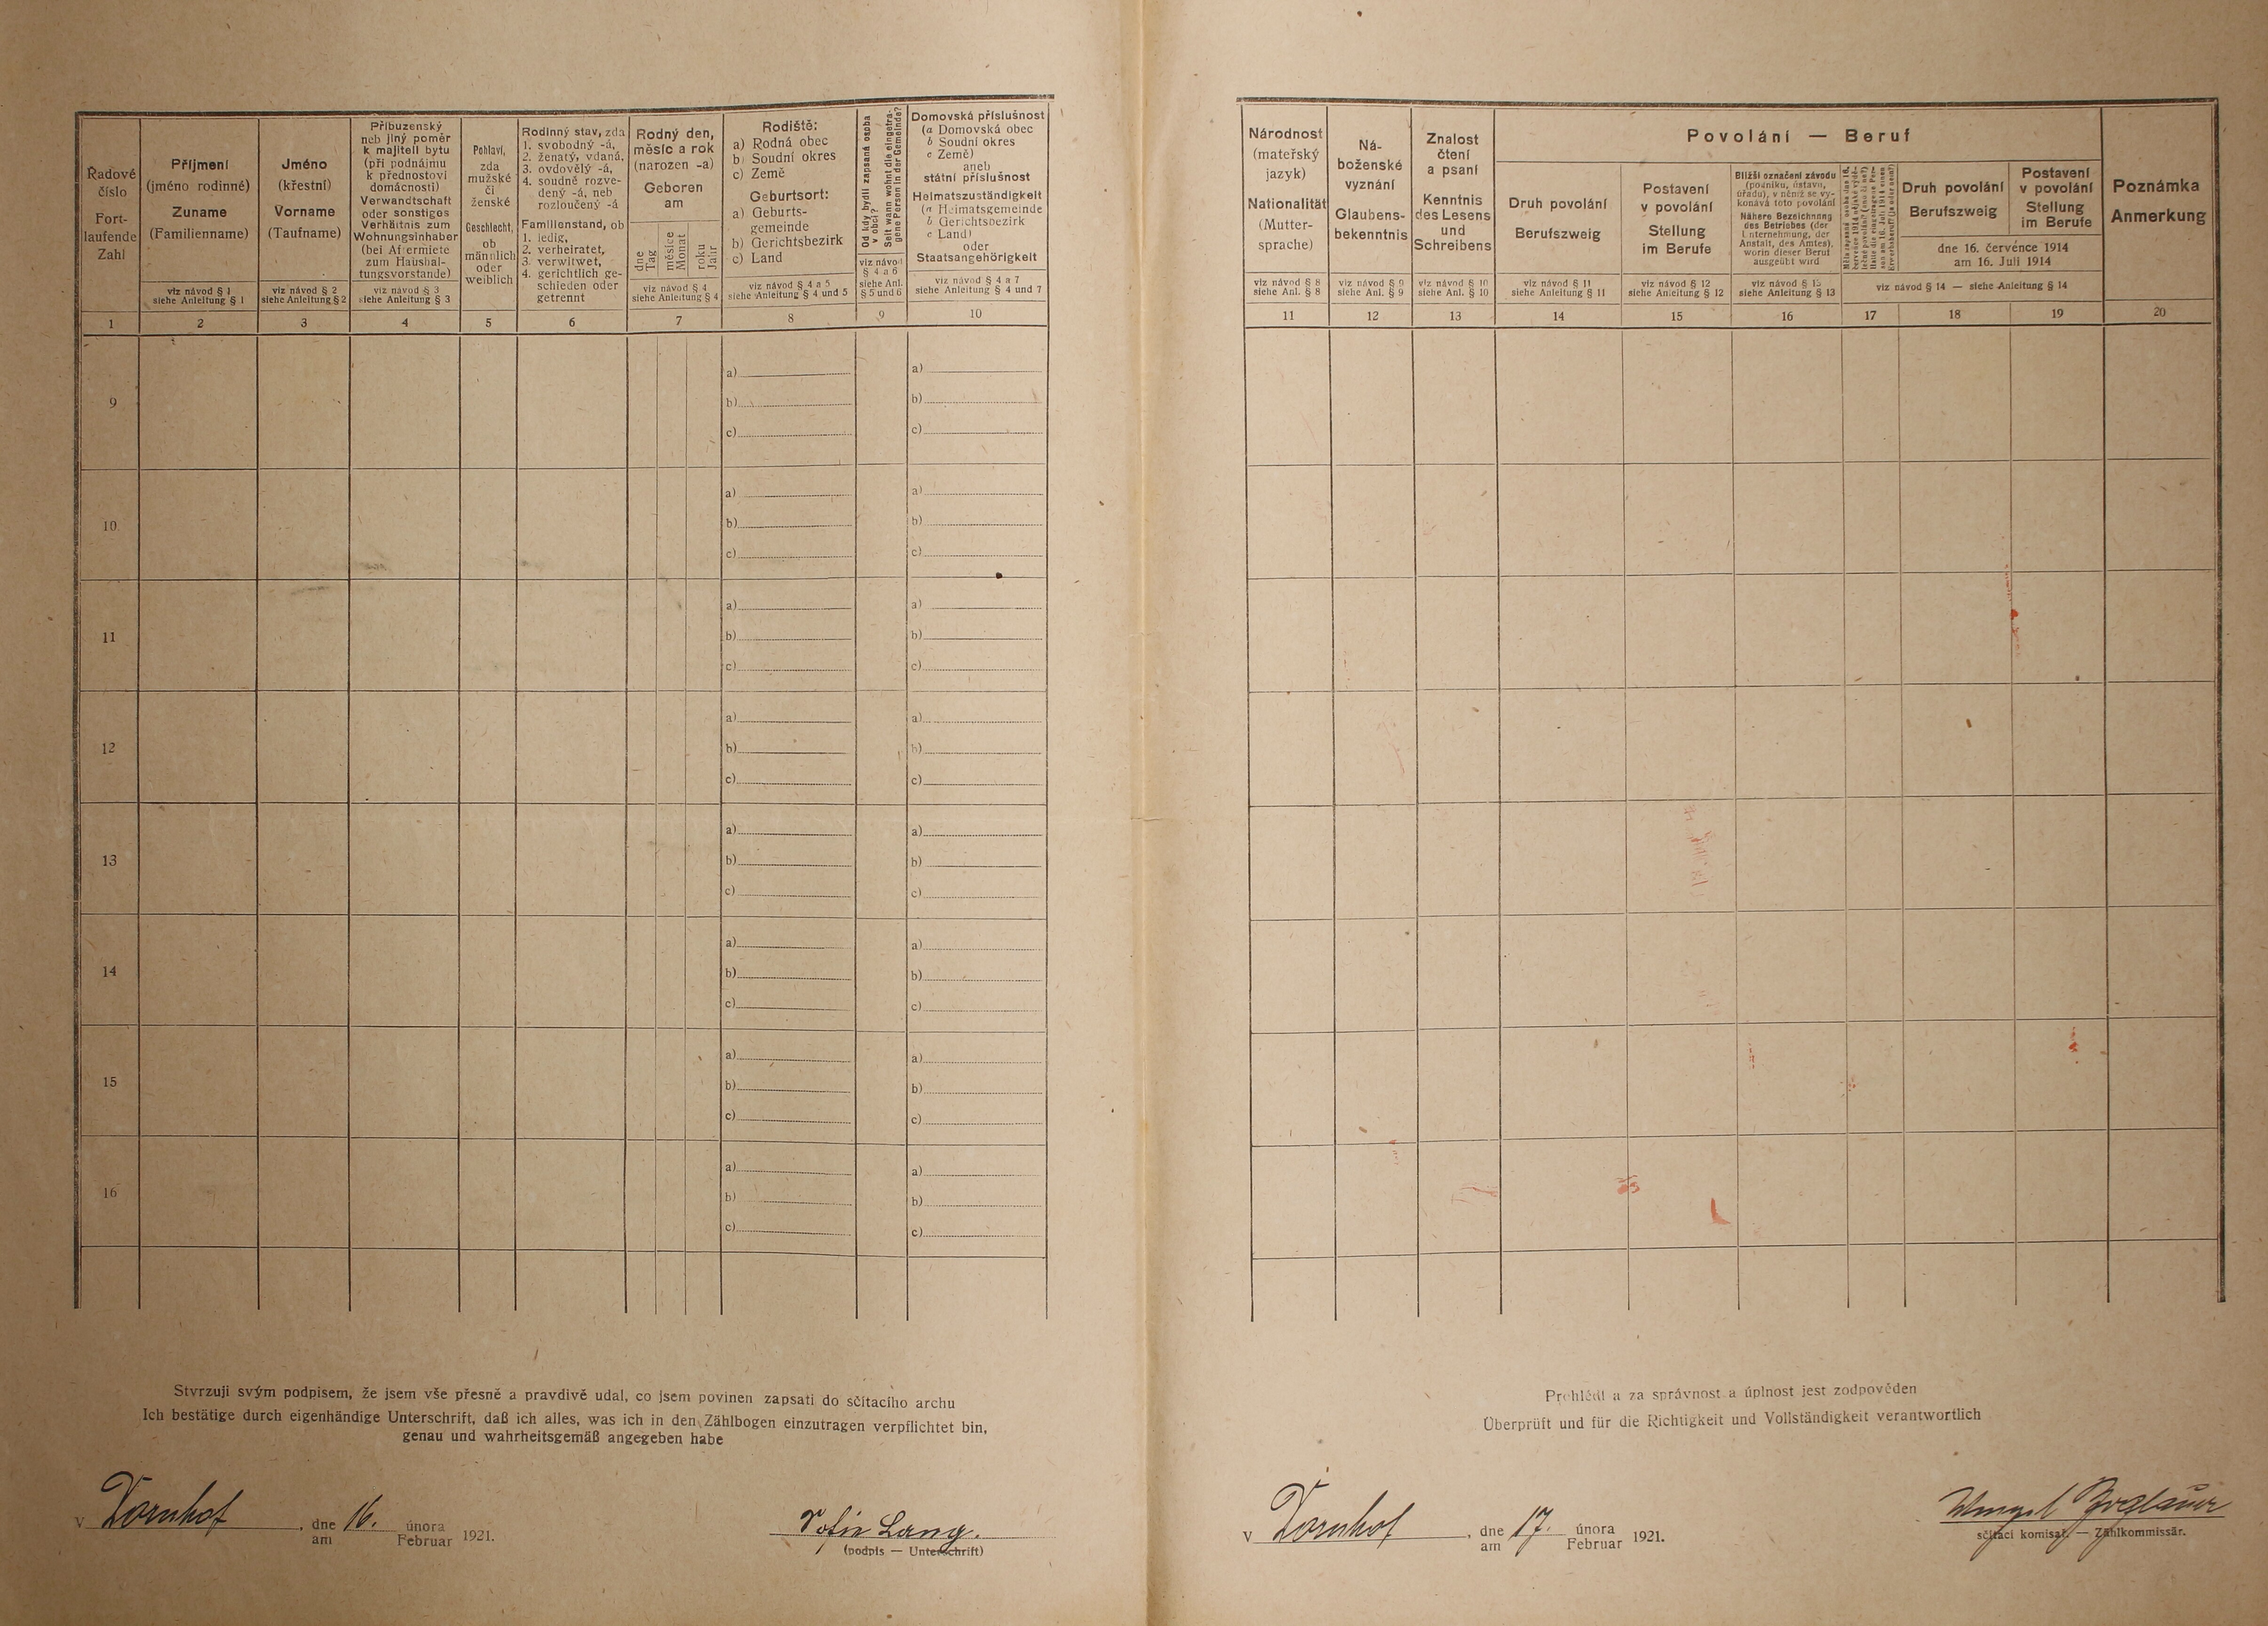 Řadové
číslo
Fort-
laufende
Zahl
1
Příjmení
(jméno rodinné)
Zuname
(Familienname)
viz návod § 1
siehe Anleitung § 1
2
Jméno
(křestní)
Vorname
(Taufname)
viz návod § 2
siehe Anleitung § 2
3
Příbuzenský
neb jiný poměr
k majiteli bytu
(při podnájmu
k přednostovi
domácnosti)
Verwandtschaft
oder sonstiges
Verhältnis zum
Wohnungsinhaber
(bei Aftermiete
zum Haushal-
tungsvorstande)
viz návod § 3
siehe Anleitung § 3
4
Pohlaví,
zda
mužské
či
ženské
Geschlecht,
ob
männlich
oder
weiblich
5
Rodinný stav, zda
1. svobodný -á,
2. ženatý, vdaná,
3. ovdovělý -á,
4. soudně rozve-
dený -á, neb
rozloučený -á
Familienstand, ob
1. ledig,
2. verheiratet,
3. verwitwet,
4. gerichtlich ge-
schieden oder
getrennt
6
Rodný den,
měsíc a rok
(narozen -a)
Geboren
am
dne
Tag
měsíce
Monat
roku
Jahr
viz návod § 4
siehe Anleitung § 4
7
Rodiště:
a) Rodná obec
b) Soudní okres
c) Země
Geburtsort:
a) Geburts-
gemeinde
b) Gerichtsbezirk
c) Land
viz návod § 4 a 5
siehe Anleitung § 4 und 5
8
Od kdy bydlí zapsaná osoba
v obci?
Seit wann wohnt die eingetra-
gene Person in der Gemeinde?
viz návod
§ 4 a 6
siehe Anl.
§ 5 und 6
9
Domovská příslušnost
(a Domovská obec
b Soudní okres
c Země)
aneb
státní příslušnost
Heimatszuständigkeit
(a Heimatsgemeinde
b Gerichtsbezirk
c Land)
oder
Staatsangehörigkeit
viz návod § 4 a 7
siehe Anleitung § 4 und 7
10
Národnost
(mateřský
jazyk)
Nationalität
(Mutter-
sprache)
viz návod § 8
siehe Anl. § 8
11
Ná-
boženské
vyznání
Glaubens-
bekenntnis
viz návod § 9
siehe Anl. § 9
12
Znalost
čtení
a psaní
Kenntnis
des Lesens
und
Schreibens
viz návod § 10
siehe Anl. § 10
13
Povolání — Beruf
Druh povolání
Berufszweig
viz návod § 11
siehe Anleitung § 11
14
Postavení
v povolání
Stellung
im Berufe
viz návod § 12
siehe Anleitung § 12
15
Bližší označení závodu
(podniku, ústavu,
úřadu), v němž se vy-
konává toto povolání
Nähere Bezeichnung
des Betriebes (der
Unternehmung, der
Anstalt, des Amtes),
worin dieser Beruf
ausgeübt wird
viz návod § 13
siehe Anleitung § 13
16
17
Druh povolání
Berufszweig
Postavení
v povolání
Stellung
im Berufe
dne 16. července 1914
am 16. Juli 1914
viz návod § 14 — siehe Anleitung § 14
18
19
Poznámka
Anmerkung
20
9
a)
b)
c)
a)
b)
c)
10
a)
b)
c)
a)
b)
c)
11
a)
b)
c)
a)
b)
c)
12
a)
b)
c)
a)
b)
c)
13
a)
b)
c)
a)
b)
c)
14
a)
b)
c)
a)
b)
c)
15
a)
b)
c)
a)
b)
c)
16
a)
b)
c)
a)
b)
c)
Stvrzuji svým podpisem, že jsem vše přesně a pravdivě udal, co jsem povinen zapsati do sčítacího archu
Ich bestätige durch eigenhändige Unterschrift, daß ich alles, was ich in den Zählbogen einzutragen verpflichtet bin,
genau und wahrheitsgemäß angegeben habe
v Dornhof, dne 16. února 1921.
am Februar
Sofie Lang.
(podpis — Unterschrift)
Prohlédl a za správnost a úplnost jest zodpověden
Überprüft und für die Richtigkeit und Vollständigkeit verantwortlich
v Dornhof, dne 17. února 1921.
am Februar
sčítací komisař. — Zählkommissär.